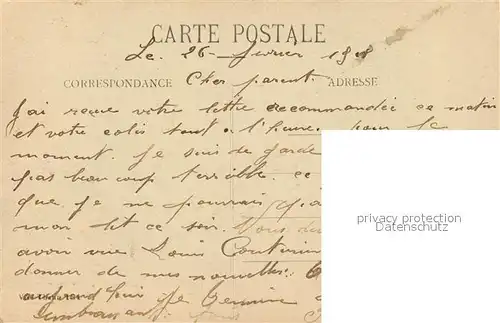 CARTE POSTALE
Le 26 fevrier 19
CORRESPONDANCE Cher parent ADRESSE
J'ai reçue votre lettre recommandée ce matin
et votre colis tout a l'heure. pour le
moment. Je suis de garde
pas beaucoup terrible. ce
que je ne pourrais
mon lit ce soir. Vous
avoir vue Louis
donner de mes nouvelles.
privacy protection
Datenschutz
Je termine